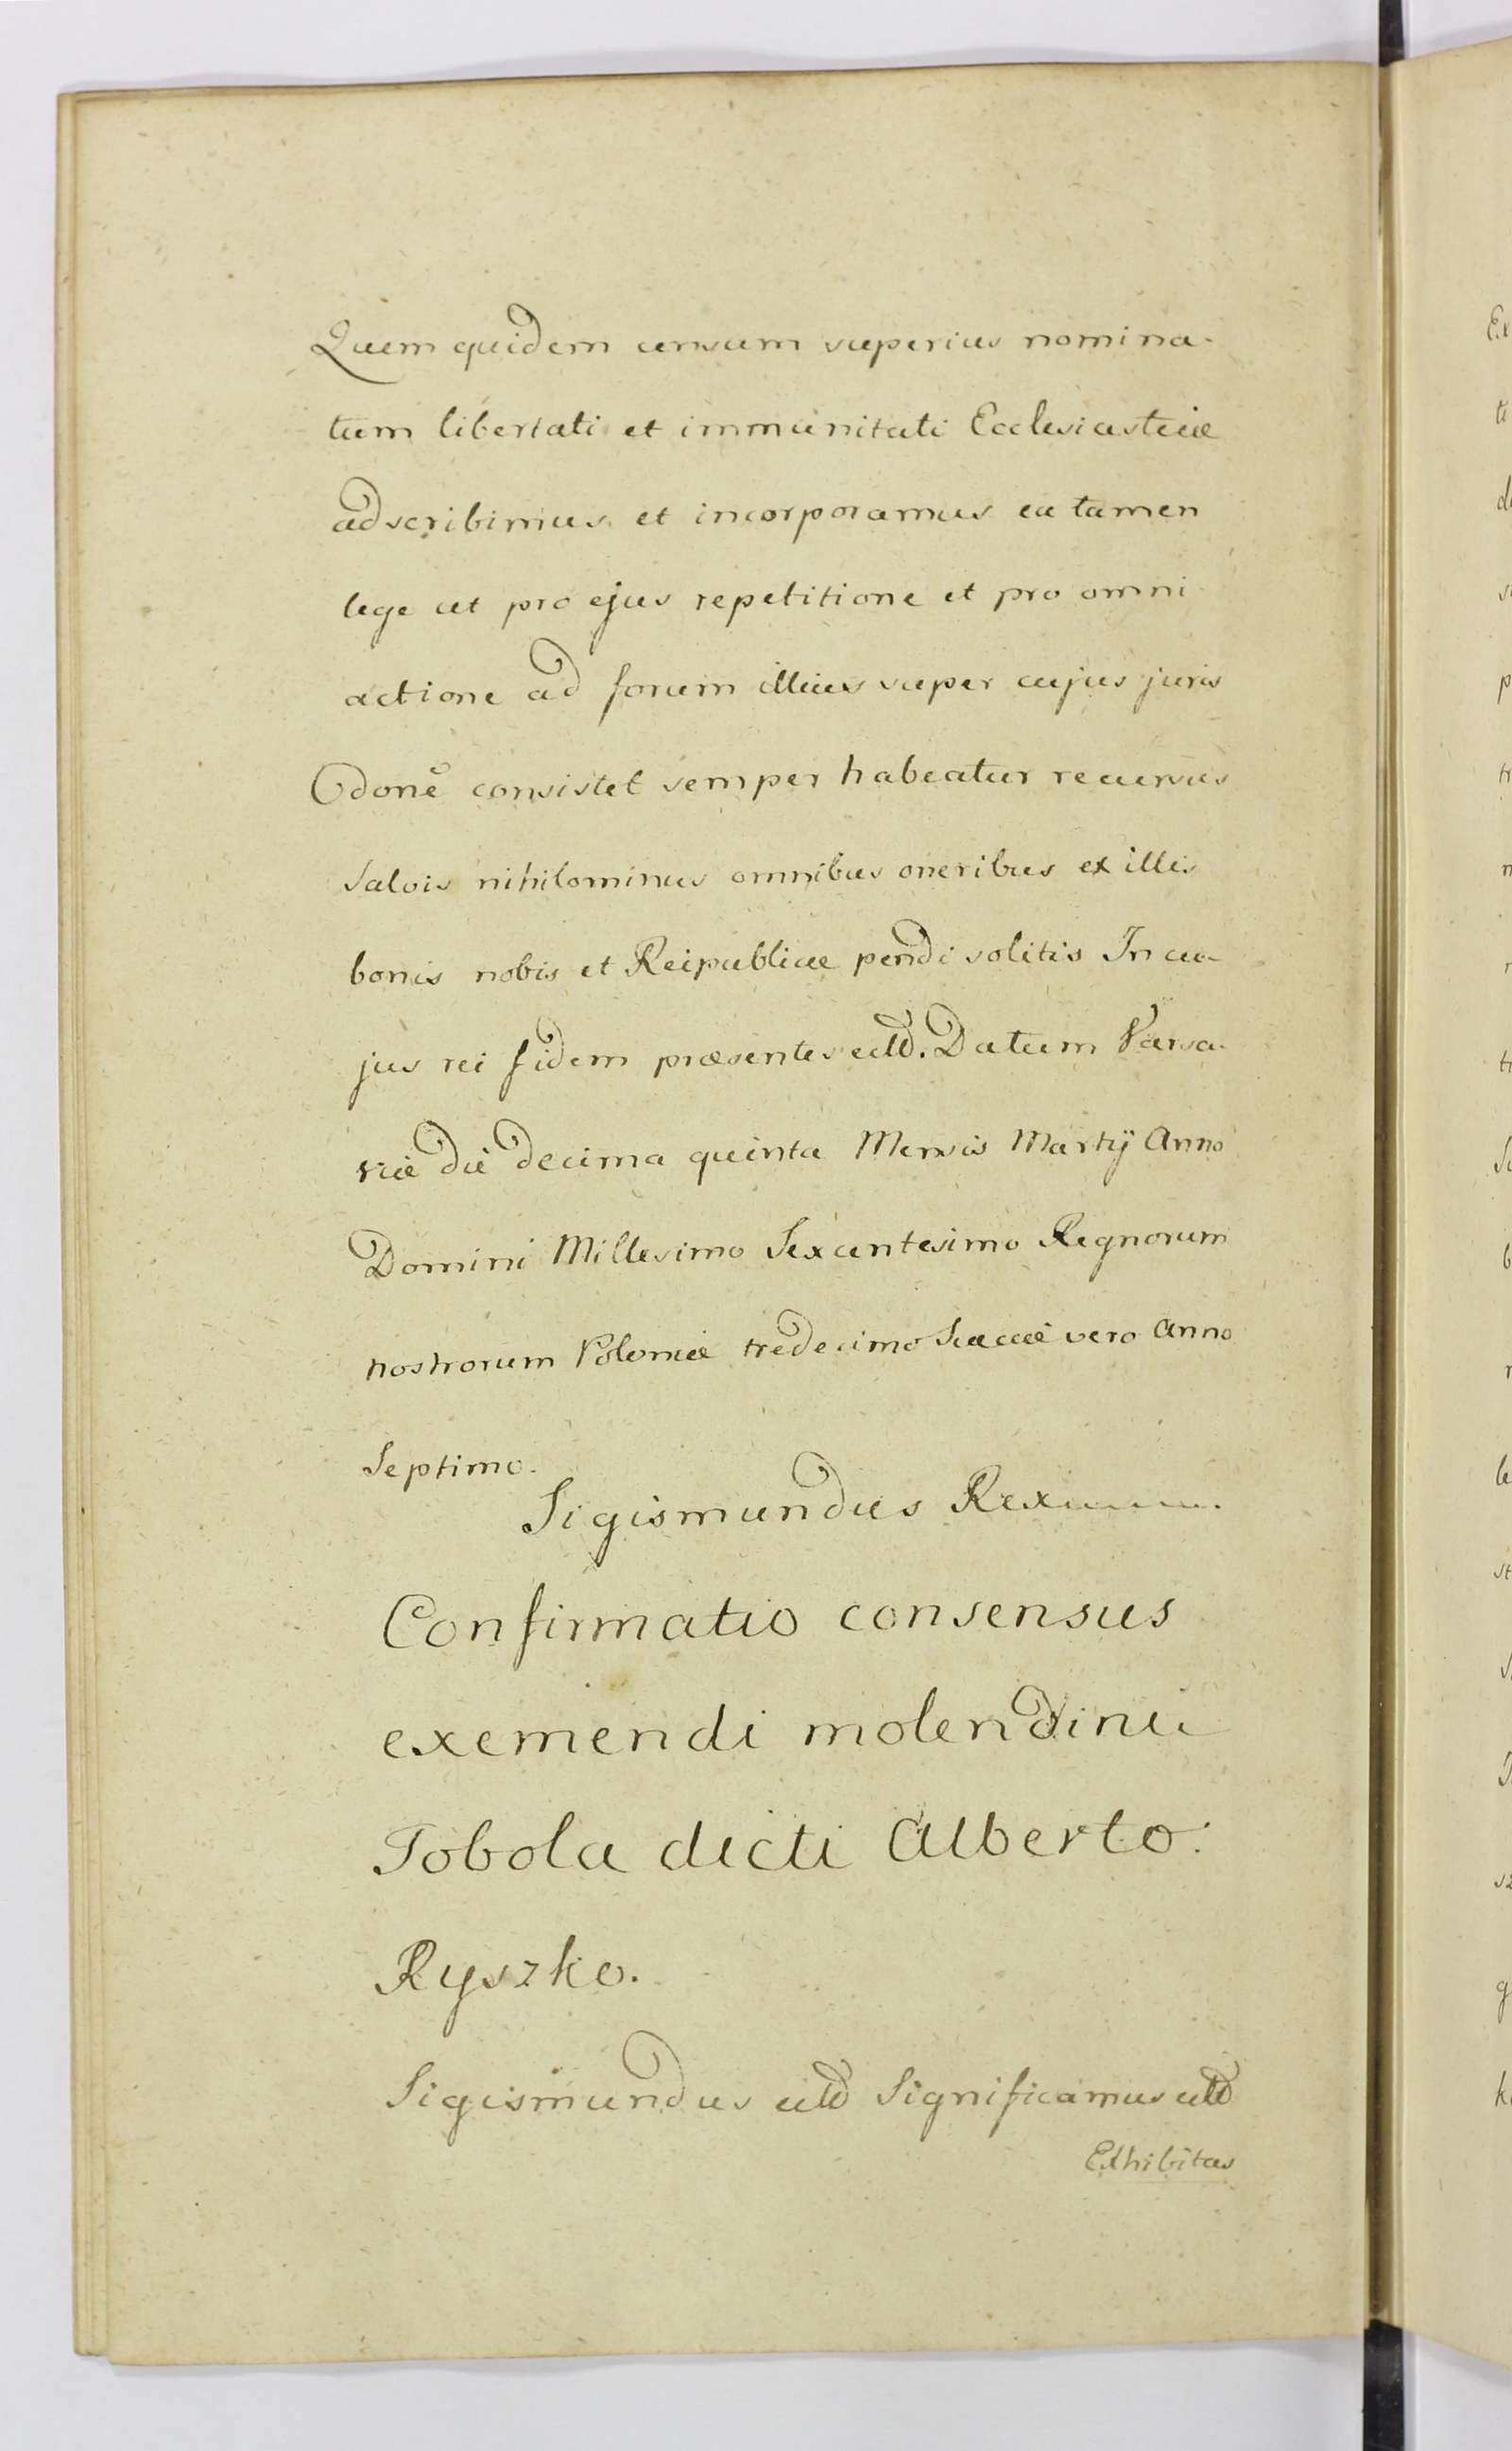 Quem quidem censum superius nomina-
tum libertati et immunitati Ecclesiasticæ
adscribimus et incorporamus ea tamen
lege ut pro ejus repetitione et pro omni
actione ad forum illius super cujus juris
Odone consistet semper habeatur recursus
Salvis nihilominus omnibus oneribus ex illis
bonis nobis et Reipublicæ pendi solitis In cu-
jus rei fidem præsentes Datum Varsa-
viæ die decima quinta Mensis Martij Anno
Domini Millesimo Sexcentesimo Regnorum
nostrorum Poloniæ tredecimo Sueciæ vero Anno
Septimo.
Sigismundus Rex
Confirmatio consensus
exemendi molendini
Tobola dicti Alberto
Ryszko.
Sigismundus Significamus
Exhibitas